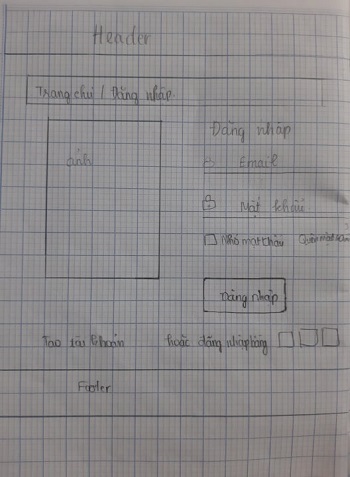 Header
Trang chủ / Đăng nhập
Đăng nhập
ảnh
Email
Mật khẩu
Nhớ mật khẩu Quên mật khẩu
Đăng nhập
Tạo tài khoản hoặc đăng nhập bằng
Footer